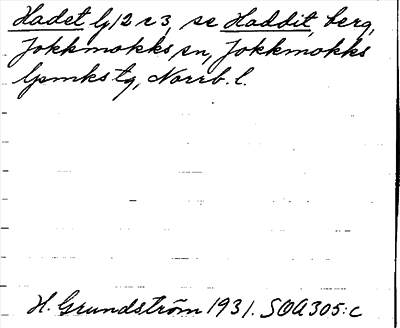 Hadet lj 2 c 3, se Haddit, berg,
Jokkmokks sn, Jokkmokks
lpmks tg, Norrb. l.
H. Grundström 1931. SOA 305:c